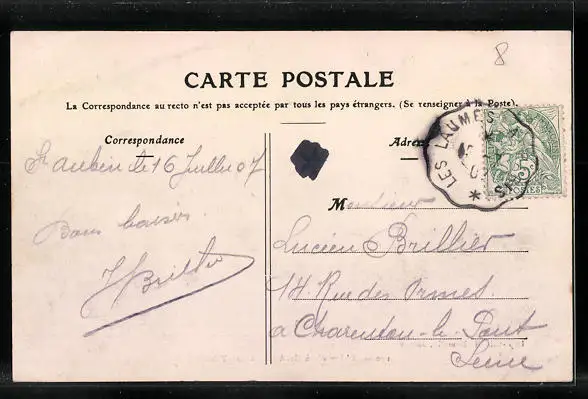 8
CARTE POSTALE
La Correspondance au recto n'est pas acceptée par tous les pays étrangers. (Se renseigner à la Poste).
Correspondance
le 16 Juillet 07
Bons baisers
Adresse
LES LAUMES
5
POSTES
Monsieur
Lucien Brillier
14 Rue des Ormes
a Charenton-le-Pont
Seine